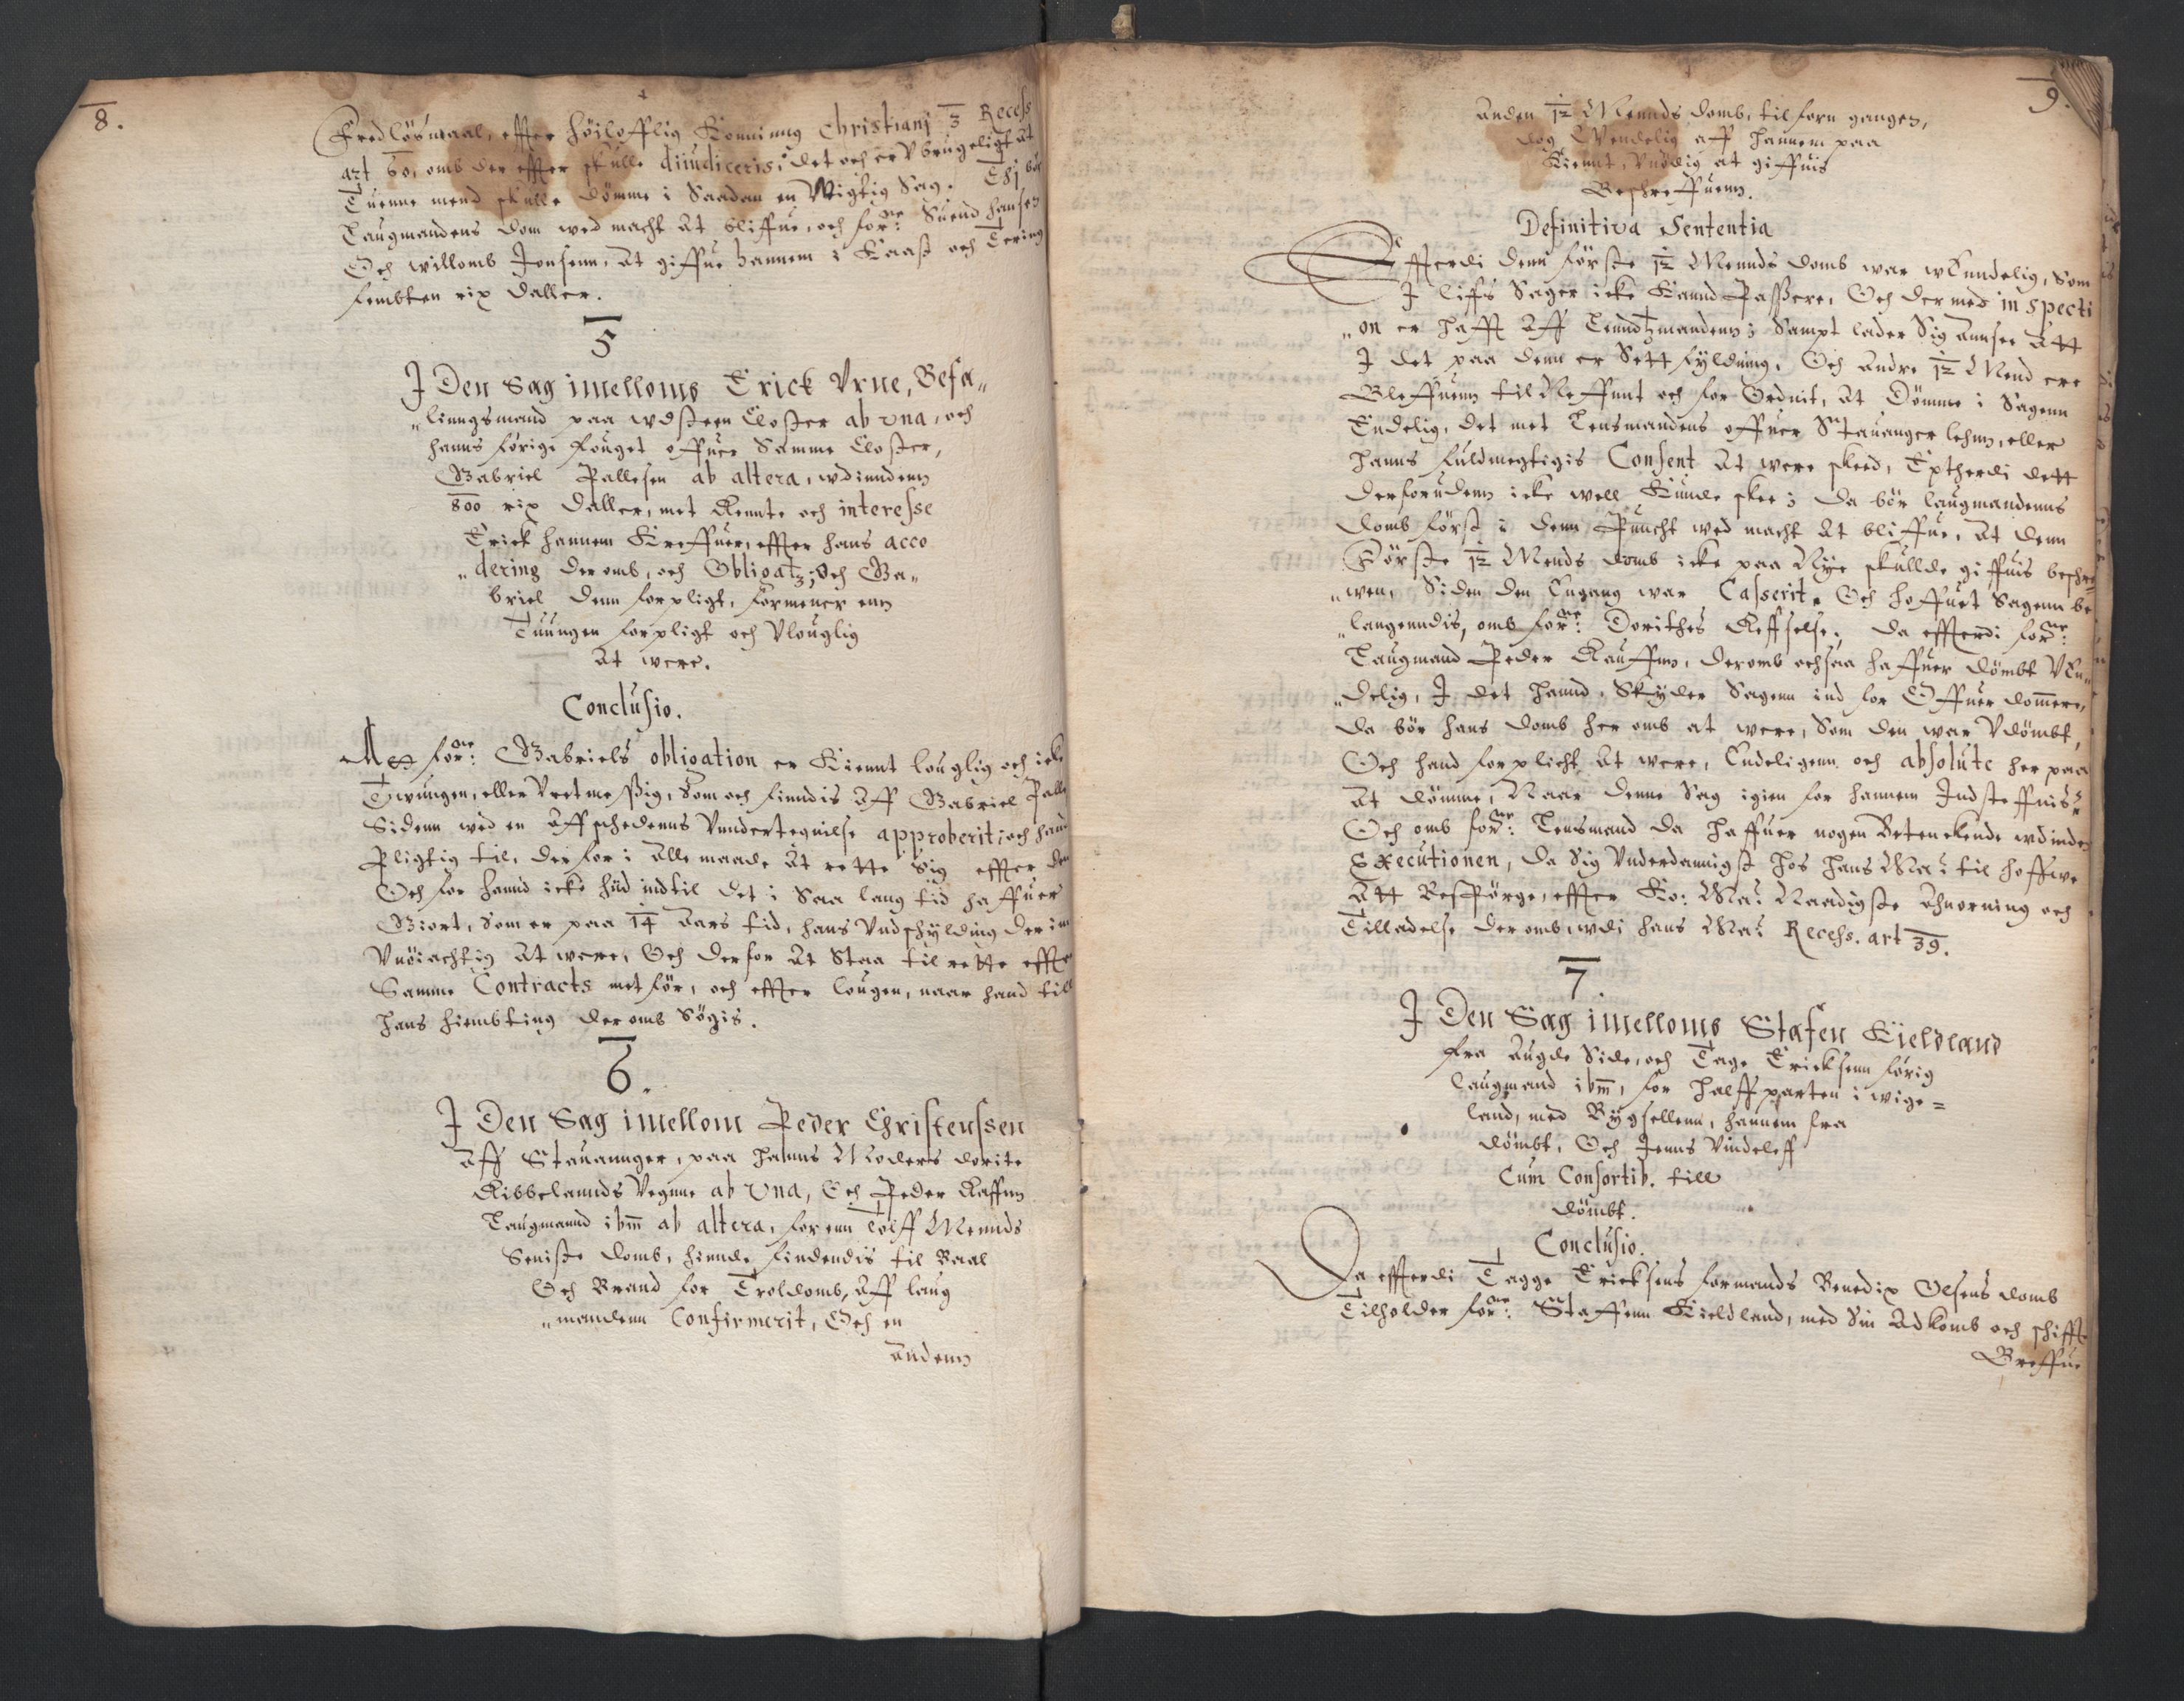 8.
Fredlösmaal, effter höilofflig Konning Christianj 3 Recess
art 60, omb der effter skulle diiudiceris, det och er Vbrugeligt at
Tuenne mend skulle dömme i Saadan en Wigtig Sag. Thj bör
Laugmandens dom wed macht At bliffue, och forne: Suend hansen
Och willomb Jonsenn, At giffue hannem i Kaast och Tering
fembten rix daller.
5
I Den Sag imellomb Erick Vrne, Befa„
„linngsmand paa wdsteen Closter ab vna, och
hanns forige fouget offuer Samme Closter,
Gabriel Pallesen ab altera, wdinndenn
800 rix daller, met Rennte och interesse
Erick hannem Kreffuer, effter hans acco
„dering der omb, och Obligatz; Och Ga„
briel denn forpligt, formener enn
Tuungen forpligt och Vlouglig
At were.
Conclusio.
At forne: Gabriels obligation er Kiennt louglig och icke
Twungen, eller Vretmessig, Som och finndis Aff Gabriel Palle
Sidenn wed en Affschedenns Vnndertegnilse approberit; och hand
Pligtig til, der for i Alle maade At rette Sig effter den
Och for hannd icke hüd indtil det i Saa lang tid haffuer
Giort, Som er paa 14 Aars tid, hans Vndschylding der im
Vnöiachtig At were, Och der for At Staa til rette effter
Samme Contracts met för, och effter lougen, naar hand till
hans hiembting der omb Sögis.
6.
I Den Sag imellom Peder Christenssen
Aff Stauannger, paa hanns Moders dorite
Kibbelannds Vegnne ab vna, Och Peder Kaffuen
Laugmannd ibm ab altera, for enn tolff Mennds
Seniste domb, hiende findendis til Baal
Och Brand for Troldomb, Aff laug
„mandenn Confirmerit, Och en
Andenn
9.
Anden 12 Mennds domb, til forn gangen,
dog Wendelig aff hannem paa
Kiennt, Vnödig at giffuis
Beschreffuenn.
Definitiva Sententia
Effterdi denn förste 12 Mennds domb war wKundelig, Som
I liffs Sager icke Kannd Passere, Och der med inspecti
„on er hafft Aff Lenndtzmandenn; Sampt lader Sig Annsee Att
I det paa denn er Sett fyldning, Och Andre 12 Mend ere
Bleffuenn til Neffnnt och for Ordnit, At Dömme i Sagenn
Endelig, det met Lensmandens offuer Stauanger lehnn, eller
hanns fuldmegtigis Consent At were skeed, Epterdi dett
der foruden icke well Kunde skee; Da bör laugmandenns
domb först i denn Puncht wed macht At bliffue, At denn
Förste 12 Mends domb icke paa Nye skullde giffuis beschre
„wen, Siden den Engang war Casserit. Och hoffuet Sagenn be
„langenndis, omb forne: Dorithes Reffselse, da effterdi forne:
Laugmand Peder Kauffuen, der omb ochsaa haffuer dömbt Vkun„
„delig, I det hannd, Skyder Sagenn ind for Offuer dommere,
da bör hans domb her omb at were, Som den war Vdömbt,
Och hand forplicht At were, Endeligenn och absolute her paa
At dömme, Naar denne Sag igien for hannem Indsteffnis:
Och omb forne: Lensmand da haffuer nogen Betenckende wdinden
Executionen, da Sig Vnderdannigst hos hans Ma: til hoffwe
Att Bespörge, effter Ko: Ma: Naadigste Ahnorning och
Tilladelse der omb, wdi hans Ma: Recess. art 39.
7.
I Den Sag imellomb Stafen Kieldland
fra Augde Side, och Tage Ericksenn forig
laugmand ibm, for halffparten i wige=
land, med Bygsellenn, hannem fra
dömbt, Och Jenns Vindeleff
Cum Consortib. till
dömbt.
Conclusio.
Da effterdi Tagge Ericksens formands Benedix Olsens domb
Tilholder forne: Staffenn Kieldland, med Sin Adkomb och schiffte
Breffue